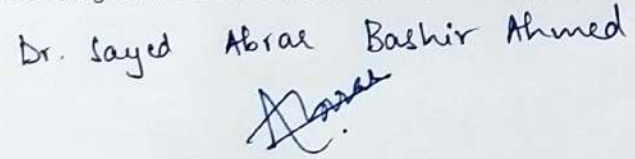 Dr. Sayed Abrar Bashir Ahmed